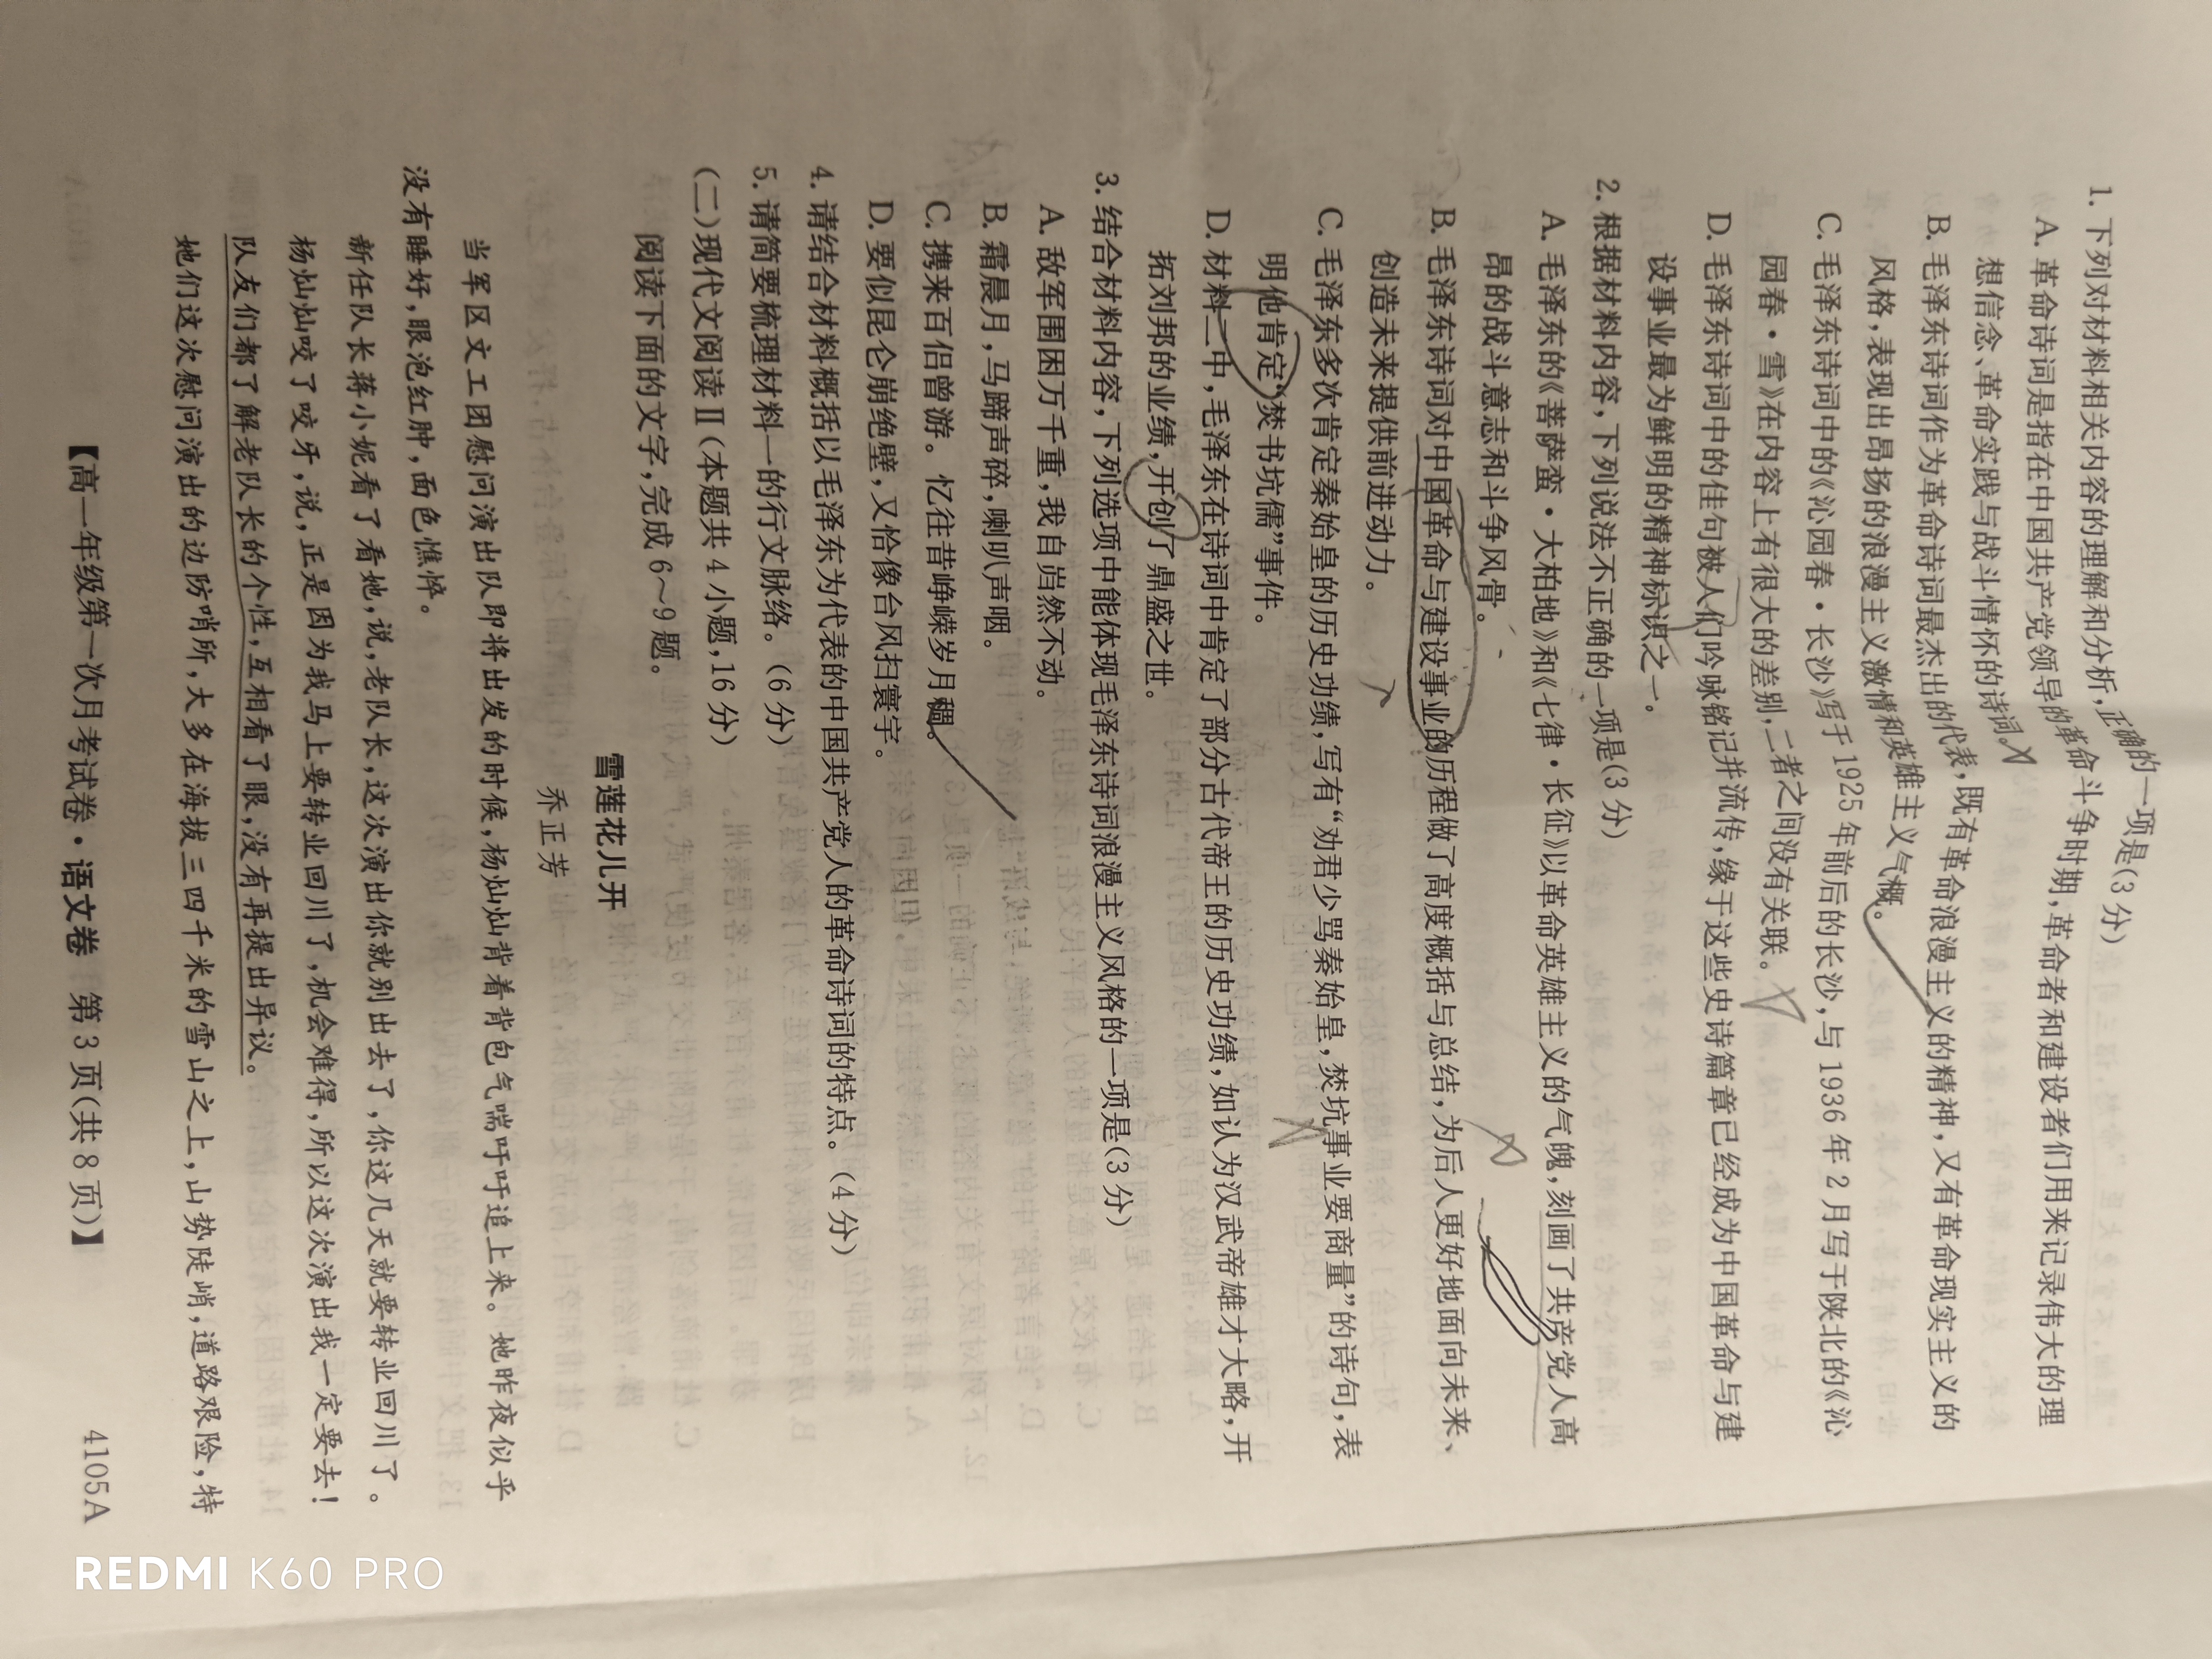 1. 下列对材料相关内容的理解和分析,正确的一项是(3 分)
A. 革命诗词是指在中国共产党领导的革命斗争时期,革命者和建设者们用来记录伟大的理
想信念、革命实践与战斗情怀的诗词。
B. 毛泽东诗词作为革命诗词最杰出的代表,既有革命浪漫主义的精神,又有革命现实主义的
风格,表现出昂扬的浪漫主义激情和英雄主义气概。
C. 毛泽东诗词中的《沁园春·长沙》写于 1925 年前后的长沙,与 1936 年 2 月写于陕北的《沁
园春·雪》在内容上有很大的差别,二者之间没有关联。
D. 毛泽东诗词中的佳句被人们吟咏铭记并流传,缘于这些史诗篇章已经成为中国革命与建
设事业最为鲜明的精神标识之一。
2. 根据材料内容,下列说法不正确的一项是(3 分)
A. 毛泽东的《菩萨蛮·大柏地》和《七律·长征》以革命英雄主义的气魄,刻画了共产党人高
昂的战斗意志和斗争风骨。
B. 毛泽东诗词对中国革命与建设事业的历程做了高度概括与总结,为后人更好地面向未来、
创造未来提供前进动力。
C. 毛泽东多次肯定秦始皇的历史功绩,写有“劝君少骂秦始皇,焚坑事业要商量”的诗句,表
明他肯定“焚书坑儒”事件。
D. 材料二中,毛泽东在诗词中肯定了部分古代帝王的历史功绩,如认为汉武帝雄才大略,开
拓刘邦的业绩,开创了鼎盛之世。
3. 结合材料内容,下列选项中能体现毛泽东诗词浪漫主义风格的一项是(3 分)
A. 敌军围困万千重,我自岿然不动。
B. 霜晨月,马蹄声碎,喇叭声咽。
C. 携来百侣曾游。忆往昔峥嵘岁月稠。
D. 要似昆仑崩绝壁,又恰像台风扫寰宇。
4. 请结合材料概括以毛泽东为代表的中国共产党人的革命诗词的特点。(4 分)
5. 请简要梳理材料一的行文脉络。(6 分)
(二)现代文阅读Ⅱ(本题共 4 小题,16 分)
阅读下面的文字,完成 6~9 题。
雪莲花儿开
乔正芳
当军区文工团慰问演出队即将出发的时候,杨灿灿背着背包气喘吁吁追上来。她昨夜似乎
没有睡好,眼泡红肿,面色憔悴。
新任队长蒋小妮看了看她,说,老队长,这次演出你就别出去了,你这几天就要转业回川了。
杨灿灿咬了咬牙,说,正是因为我马上要转业回川了,机会难得,所以这次演出我一定要去!
队友们都了解老队长的个性,互相看了眼,没有再提出异议。
她们这次慰问演出的边防哨所,大多在海拔三四千米的雪山之上,山势陡峭,道路艰险,特
【高一年级第一次月考试卷·语文卷 第 3 页(共 8 页)】
4105A
REDMI K60 PRO